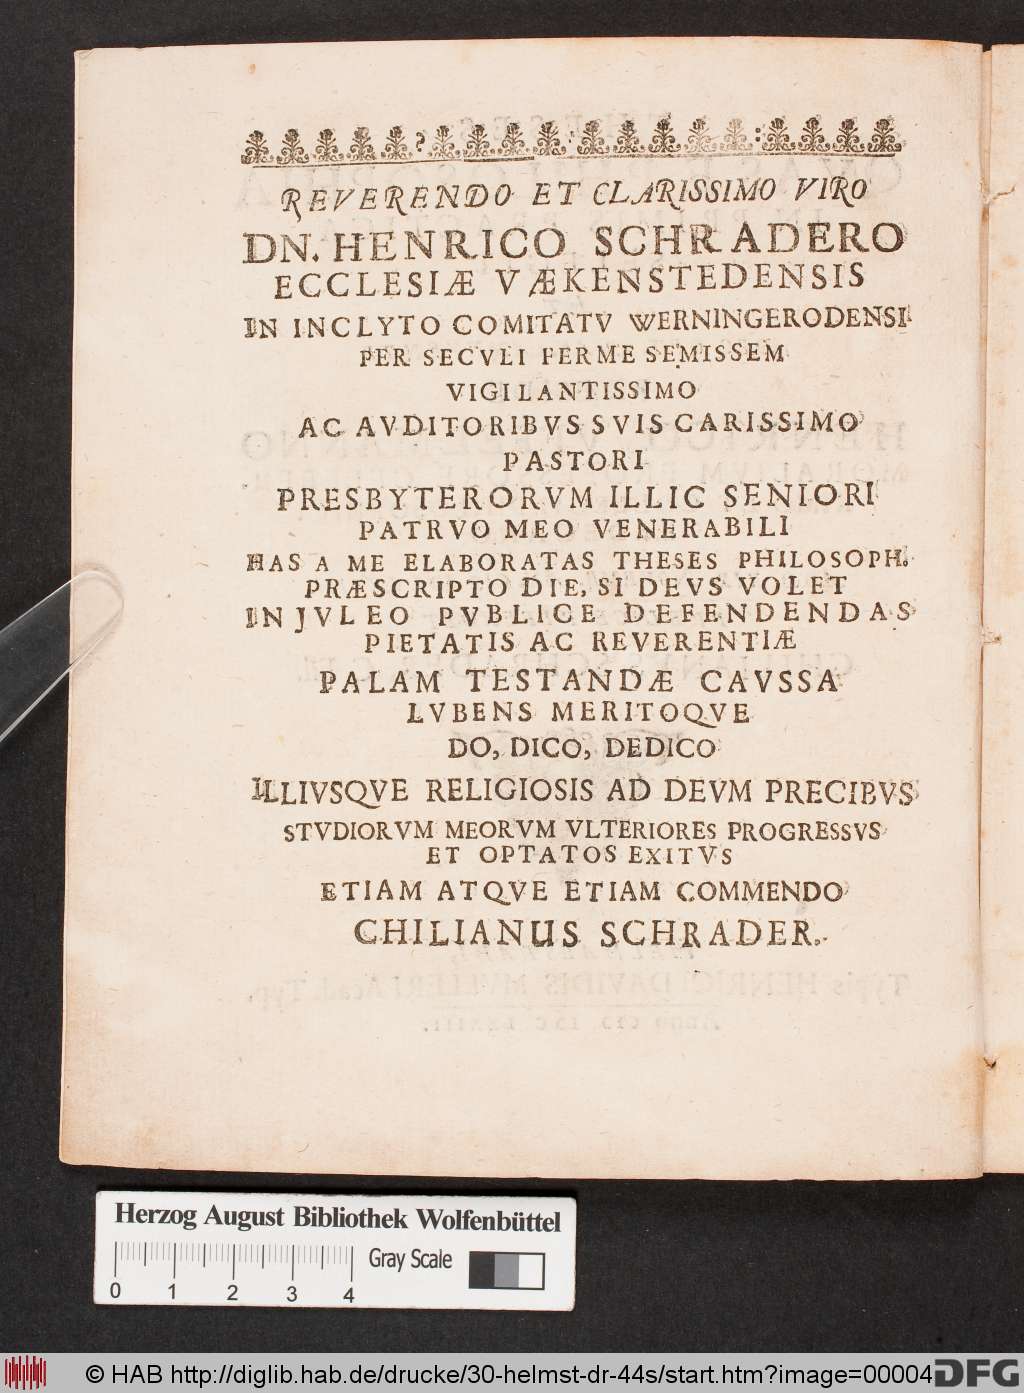 REVERENDO ET CLARISSIMO VIRO
DN. HENRICO SCHRADERO
ECCLESIÆ VÆKENSTEDENSIS
IN INCLYTO COMITATV WERNINGERODENSI
PER SECVLI FERME SEMISSEM
VIGILANTISSIMO
AC AVDITORIBVS SVIS CARISSIMO
PASTORI
PRESBYTERORVM ILLIC SENIORI
PATRVO MEO VENERABILI
HAS A ME ELABORATAS THESES PHILOSOPH.
PRÆSCRIPTO DIE, SI DEVS VOLET
IN JVLEO PVBLICE DEFENDENDAS
PIETATIS AC REVERENTIÆ
PALAM TESTANDÆ CAVSSA
LVBENS MERITOQVE
DO, DICO, DEDICO
ILLIVSQVE RELIGIOSIS AD DEVM PRECIBVS
STVDIORVM MEORVM VLTERIORES PROGRESSVS
ET OPTATOS EXITVS
ETIAM ATQVE ETIAM COMMENDO
CHILIANUS SCHRADER.
Herzog August Bibliothek Wolfenbüttel
Gray Scale
0 1 2 3 4
© HAB http://diglib.hab.de/drucke/30-helmst-dr-44s/start.htm?image=00004
DFG